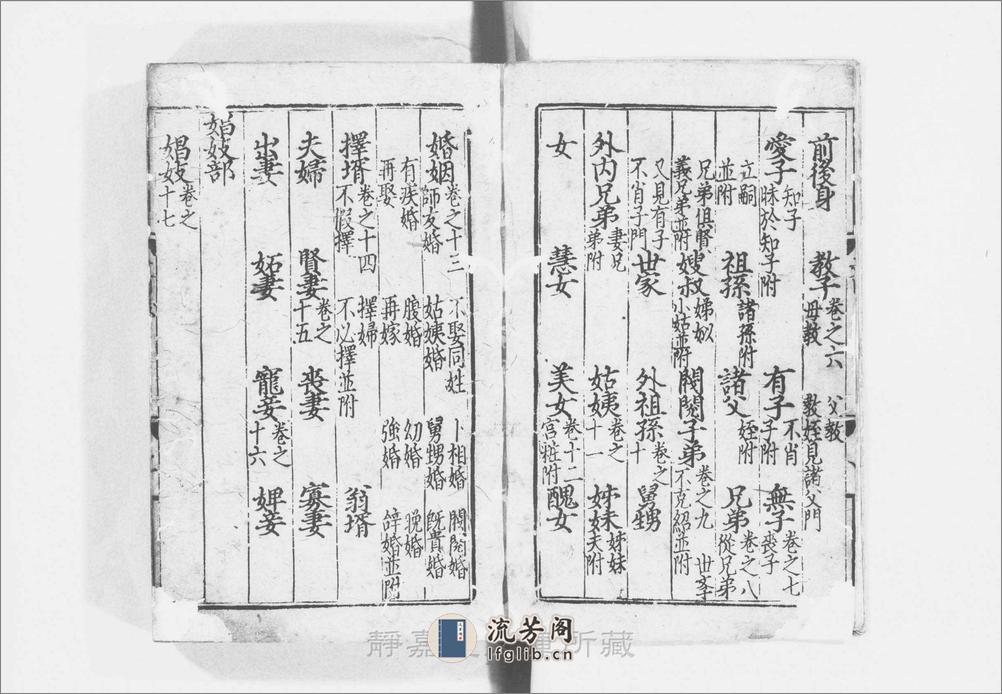 前後身 教子 卷之六 父教 母教 教姪見諸父門
愛子 知子 昧於知子附 有子 不肖子附 無子 卷之七 喪子
立嗣並附 祖孫 諸孫附 諸父 姪附 兄弟 卷之八 從兄弟
兄弟俱賢 義兄弟並附 嫂叔 娣姒 小姑並附 閥閱子弟 卷之九 世 不克紹並附
又見有子不肖子門 世家 外祖孫 卷之十 舅甥
外内兄弟 妻兄弟附 姑姨 卷之十一 姊妹 姊妹夫附
女 慧女 美女 卷十二 宮粧附 醜女
婚姻 卷之十三 不娶同姓 卜相婚 閥閱婚 師友婚 姑姨婚 舅甥婚 既貴婚
有疾婚 腹婚 幼婚 晚婚 再娶 再嫁 強婚 辭婚並附
擇壻 卷之十四 擇婦 不假擇 不必擇並附 翁壻
夫婦 賢妻 卷之十五 喪妻 寡妻
出妻 妬妻 寵妾 卷之十六 婢妾
娼妓部
娼妓 卷之十七
靜嘉 所藏
流芳阁
lfglib.cn